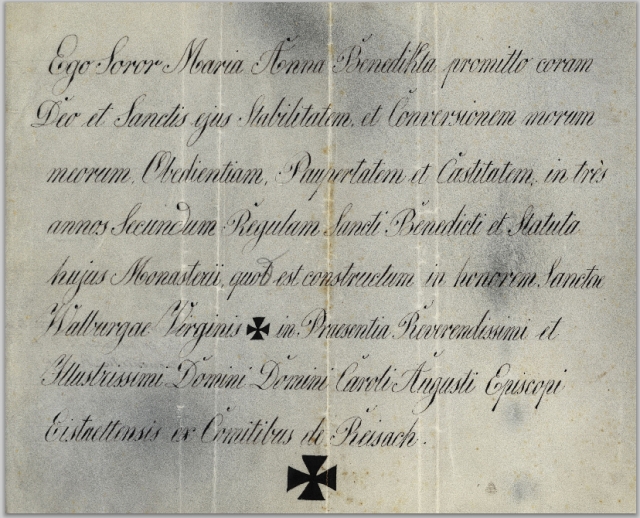 Ego Soror Maria Anna Benedikta promitto coram
Deo et Sanctis ejus Stabilitatem, et Conversionem morum
meorum, Obedientiam, Paupertatem et Castitatem, in très
annos Secundum Regulam Sancti Benedicti et Statuta
hujus Monasterii, quod est constructum in honorem Sanctae
Walburgae Virginis ✠ in Praesentia Reverendissimi et
Illustrissimi Domini Domini Caroli Augusti Episcopi
Eistaettensis ex Comitibus de Reisach.